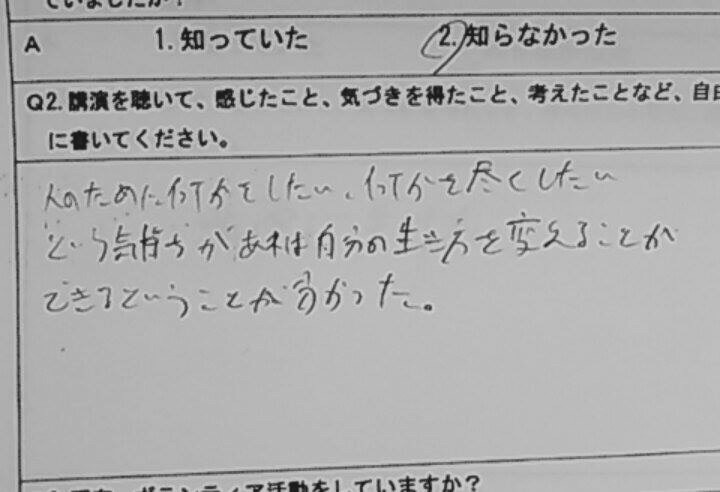 ていましたか？
A 1.知っていた 2.知らなかった
Q2.講演を聴いて、感じたこと、気づきを得たこと、考えたことなど、自由
に書いてください。
人のために何かをしたい、何かを尽くしたい
という気持ちがあれば自分の生き方を変えることが
できるということが分かった。
ボランティア活動をしていますか？